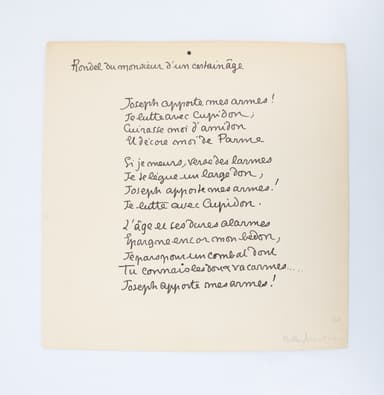 Rondel du monsieur d'un certain âge
Joseph apporte mes armes !
Je lutte avec Cupidon,
Cuirasse moi d'amidon
Et décore moi de Parme
Si je meurs, verse des larmes
Je te lègue un large don,
Joseph apporte mes armes !
Je lutte avec Cupidon.
L'âge et ses dures alarmes
Epargne encor mon bedon,
Je pars pour un combat dont
Tu connais les doux vacarmes.....
Joseph apporte mes armes !